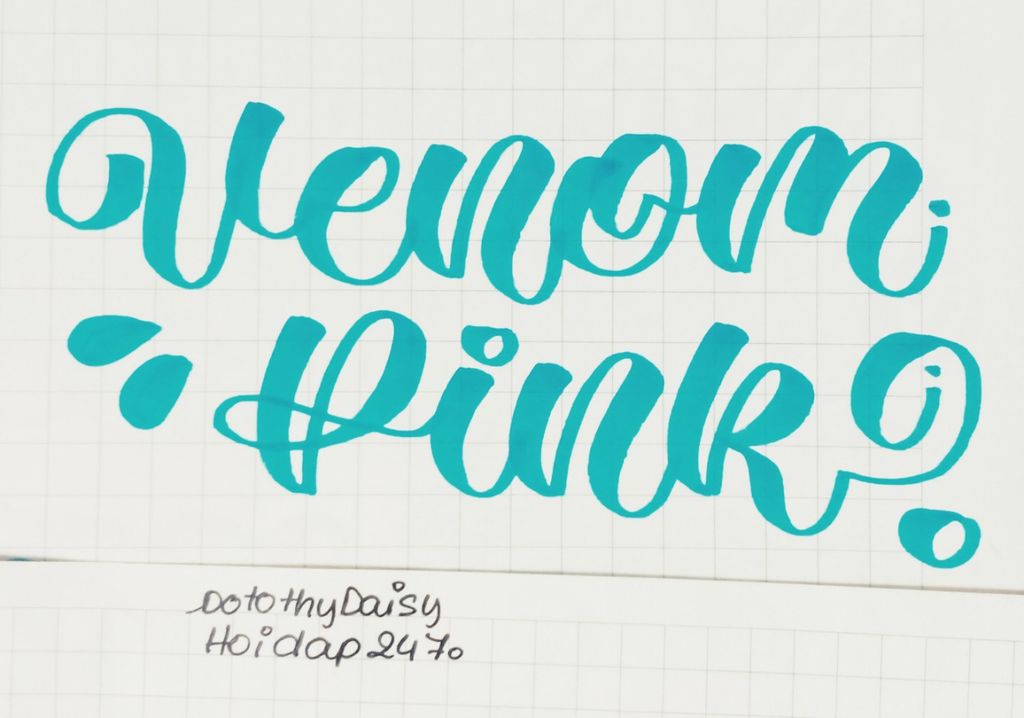 Venom
Pink
DotothyDaisy
Hoidap247